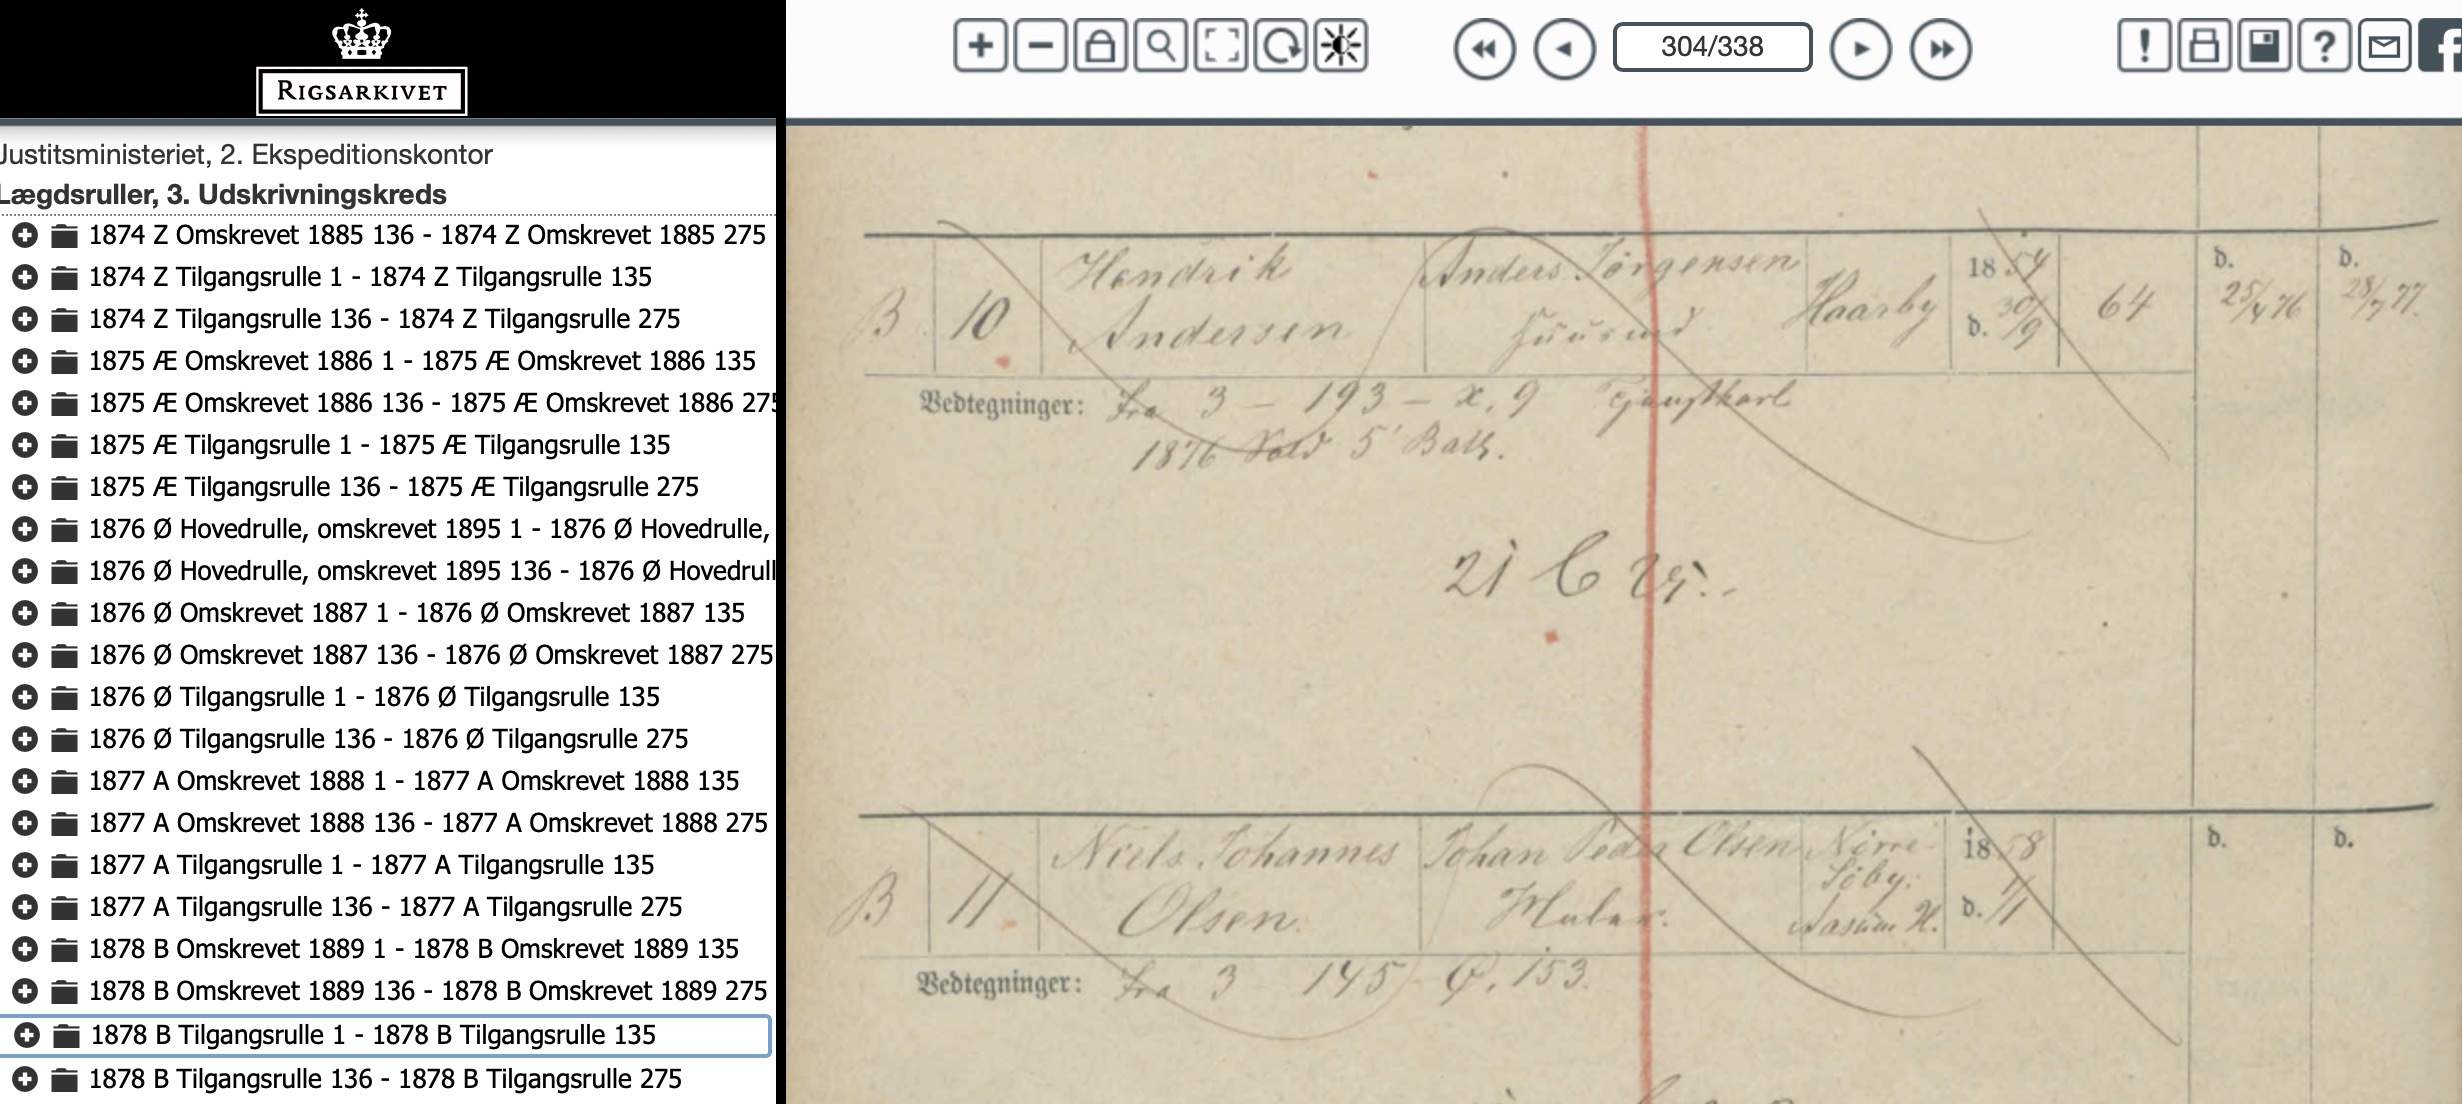 RIGSARKIVET
304/338
Justitsministeriet, 2. Ekspeditionskontor
Lægdsruller, 3. Udskrivningskreds
1874 Z Omskrevet 1885 136 - 1874 Z Omskrevet 1885 275
1874 Z Tilgangsrulle 1 - 1874 Z Tilgangsrulle 135
1874 Z Tilgangsrulle 136 - 1874 Z Tilgangsrulle 275
1875 Æ Omskrevet 1886 1 - 1875 Æ Omskrevet 1886 135
1875 Æ Omskrevet 1886 136 - 1875 Æ Omskrevet 1886 275
1875 Æ Tilgangsrulle 1 - 1875 Æ Tilgangsrulle 135
1875 Æ Tilgangsrulle 136 - 1875 Æ Tilgangsrulle 275
1876 Ø Hovedrulle, omskrevet 1895 1 - 1876 Ø Hovedrulle,
1876 Ø Hovedrulle, omskrevet 1895 136 - 1876 Ø Hovedrull
1876 Ø Omskrevet 1887 1 - 1876 Ø Omskrevet 1887 135
1876 Ø Omskrevet 1887 136 - 1876 Ø Omskrevet 1887 275
1876 Ø Tilgangsrulle 1 - 1876 Ø Tilgangsrulle 135
1876 Ø Tilgangsrulle 136 - 1876 Ø Tilgangsrulle 275
1877 A Omskrevet 1888 1 - 1877 A Omskrevet 1888 135
1877 A Omskrevet 1888 136 - 1877 A Omskrevet 1888 275
1877 A Tilgangsrulle 1 - 1877 A Tilgangsrulle 135
1877 A Tilgangsrulle 136 - 1877 A Tilgangsrulle 275
1878 B Omskrevet 1889 1 - 1878 B Omskrevet 1889 135
1878 B Omskrevet 1889 136 - 1878 B Omskrevet 1889 275
1878 B Tilgangsrulle 1 - 1878 B Tilgangsrulle 135
1878 B Tilgangsrulle 136 - 1878 B Tilgangsrulle 275
Hendrik Anders Jörgensen 1854 d. d.
B 10 Andersen Huusmd Haarby d. 30/9 64 25/4 76 28/7 77.
Vedtegninger: fra 3 - 193 - X. 9 Tjenstkarl
1876 Sold 5' Batl.
21
Niels Johannes Johan Peder Olsen Nörre 1858 d. d.
Söby.
B 11 Olsen. Maler. Aasum H. d. 1/1
Vedtegninger: fra 3 145 Ø. 153.